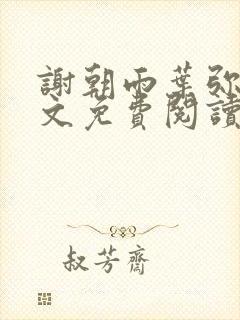 謝朝雨葉弥
文免費閱讀
叔芳齋